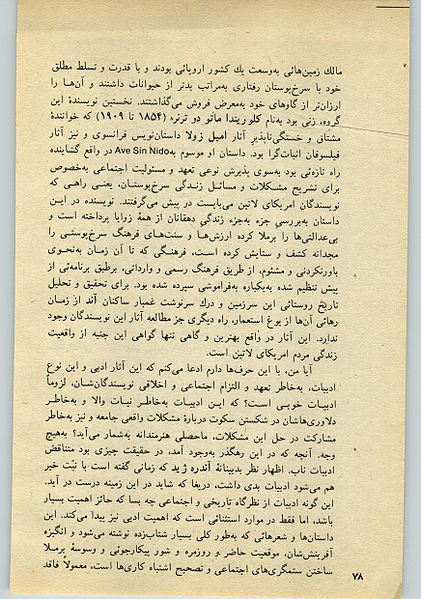 مالك زمین‌هائی به‌وسعت یك کشور اروپائی بودند و با قدرت و تسلط مطلق
خود با سرخ‌پوستان رفتاری به‌مراتب بدتر از حیوانات داشتند و آن‌ها را
ارزان‌تر از گاوهای خود به‌معرض فروش می‌گذاشتند. نخستین نویسندهٔ این
گروه، زنی بود به‌نام کلوریندا ماتو دو ترنر، (۱۸۵۴ تا ۱۹۰۹) که خوانندهٔ
مشتاق و خستگی‌ناپذیر آثار امیل زولا داستان‌نویس فرانسوی و نیز آثار
فیلسوفان اثبات‌گرا بود. داستان او موسوم به Ave Sin Nido در واقع گشاینده
راه تازه‌ئی بود به‌سوی پذیرش نوعی تعهد و مسئولیت اجتماعی به‌خصوص
برای تشریح مشکلات و مسائل زندگی سرخ‌پوستان، یعنی راهی که
نویسندگان امریکای لاتین می‌بایست در پیش می‌گرفتند. نویسنده در این
داستان به‌بررسی جزء به‌جزء زندگی دهقانان از همهٔ زوایا پرداخته است و
بی‌عدالتی‌ها را برملا کرده ارزش‌ها و سنت‌های فرهنگ سرخ‌پوستی را
مجدانه کشف و ستایش کرده است، فرهنگی که تا آن زمان به‌نحوی
باورنکردنی و مشئوم، از طریق فرهنگ رسمی و وارداتی، برطبق برنامه‌ئی از
پیش تنظیم شده به‌یکباره به‌فراموشی سپرده شده بود. برای تحقیق و تحلیل
تاریخ روستائی این سرزمین و درك سرنوشت غمبار ساکنان آند از زمان
رهائی آن‌ها از یوغ استعمار، راه دیگری جز مطالعه آثار این نویسندگان وجود
ندارد. این آثار در واقع بهترین و گاهی تنها گواهی این جنبه از واقعیت
زندگی مردم امریکای لاتین است.
آیا من، با این حرف‌ها دارم ادعا می‌کنم که این آثار ادبی و این نوع
ادبیات، به‌خاطر تعهد و التزام اجتماعی و اخلاقی نویسندگان‌شان، لزوماً
ادبیات خوبی است؟ که این ادبیات به‌خاطر نیات والا و به‌خاطر
دلاوری‌هاشان در شکستن سکوت دربارهٔ مشکلات واقعی جامعه و نیز به‌خاطر
مشارکت در حل این مشکلات، ماحصلی هنرمندانه به‌شمار می‌آید؟ به‌هیچ
وجه. آنچه که در این رهگذر به‌وجود آمد، در حقیقت چیزی بود متناقض
ادبیات ناب. اظهار نظر بدبینانهٔ آندره ژید که زمانی گفته است با نیّت خیر
هم می‌شود ادبیات بدی داشت، دریغا که شاید در این زمینه درست در آید.
این گونه ادبیات از نظرگاه تاریخی و اجتماعی چه بسا که حائز اهمیت بسیار
باشد، اما فقط در موارد استثنائی است که اهمیت ادبی نیز پیدا می‌کند. این
داستان‌ها و شعرهائی که به‌طور کلی بسیار شتاب‌زده نوشته می‌شود و انگیزه
آفرینش‌شان، موقعیت حاضر و روزمره و شور پیکارجوئی و وسوسهٔ برملا
ساختن ستمگری‌های اجتماعی و تصحیح اشتباه کاری‌ها است، معمولاً فاقد
۷۸